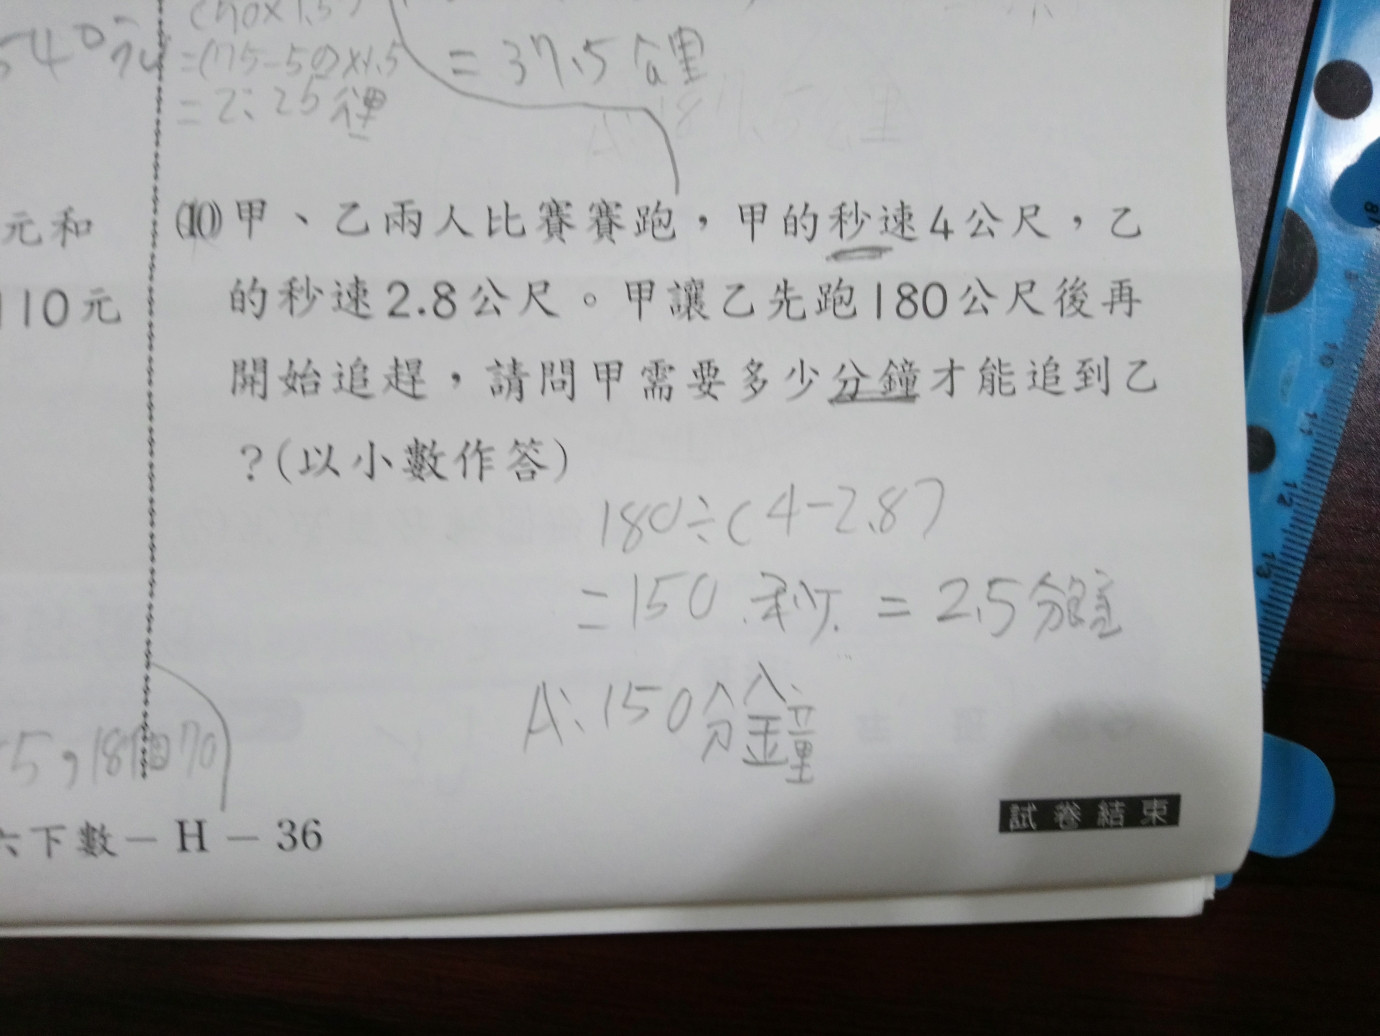 540元
=(75-50)×1.5
= 37.5公里
元和
110元
⑽甲、乙兩人比賽賽跑，甲的秒速4公尺，乙
的秒速2.8公尺。甲讓乙先跑180公尺後再
開始追趕，請問甲需要多少分鐘才能追到乙
？(以小數作答)
180÷(4-2.8)
=150秒. = 2.5分鐘
A:150分鐘
試卷結束
六下數－H－36